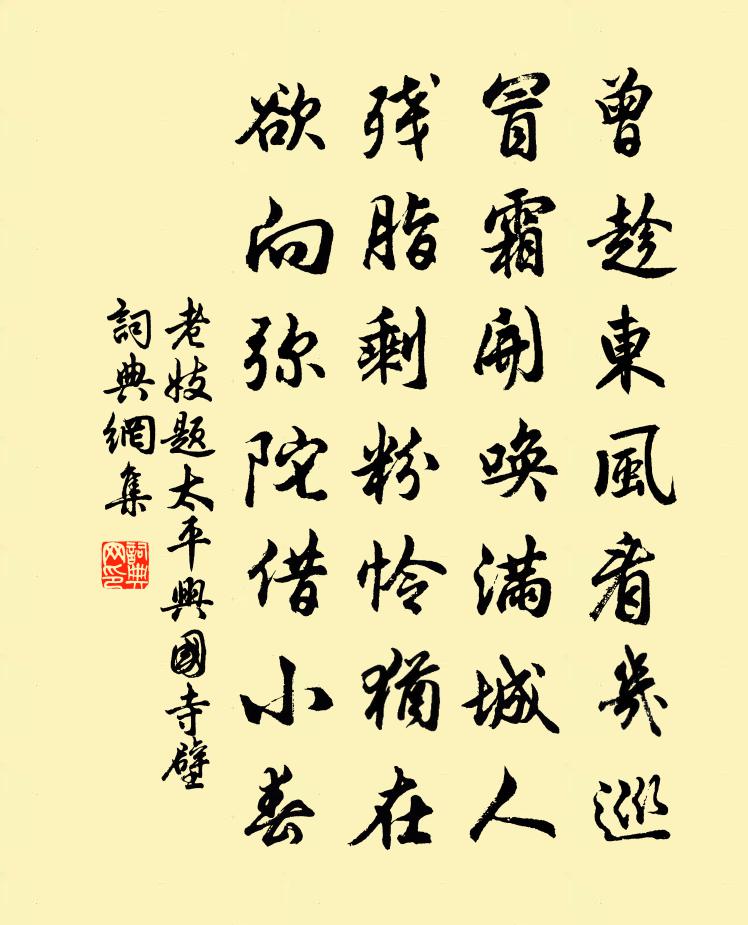 曾趁東風看幾巡
冒霜開喚滿城人
残脂剩粉怜猶在
欲向弥陀借小春
老妓題太平興國寺壁
詞典網集
詞典网印